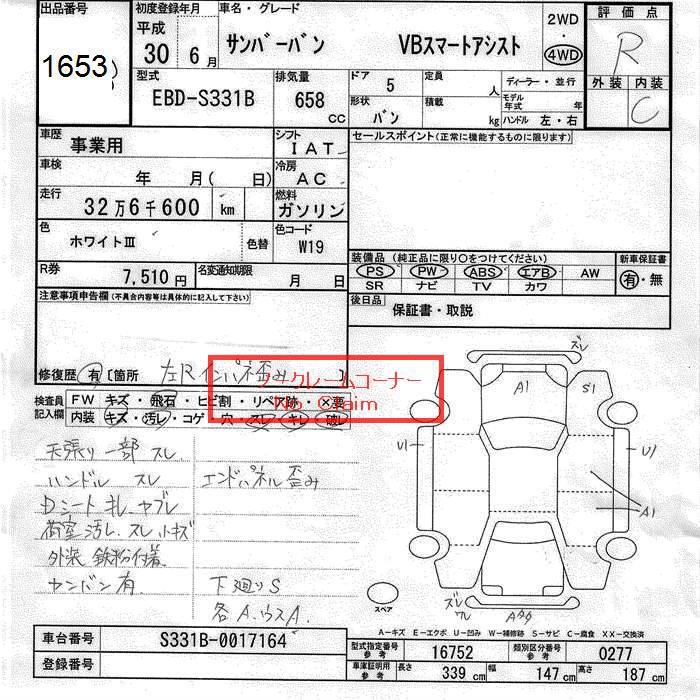 出品番号
1653
初度登録年月
平成
30 年 6 月
車名・グレード
サンバーバン VBスマートアシスト
2WD
・
4WD
評価点
R
外装 内装
C
型式
EBD-S331B
排気量
658 cc
ドア 5
定員 人
ディーラー・並行
形状 バン
積載 kg
モデル年式 年
ハンドル 左・右
車歴 事業用
シフト IAT
セールスポイント(正常に機能するものに限ります)
車検 年 月( 日)
冷房 AC
走行 32万6千600 km
燃料 ガソリン
色 ホワイトⅢ 色替
色コード W19
R券 7,510円
名変通知期限 月 日
装備品(純正品に限り○をつけてください)
PS PW ABS エアB AW
SR ナビ TV カワ
新車保証書
有・無
後日品 保証書・取説
注意事項申告欄(不具合内容等は具体的に記入して下さい)
修復歴 有 〔箇所 左Rインパネ歪み 〕
ノークレームコーナー
No Claim
検査員記入欄
FW キズ・飛石・ヒビ割・リペア跡・×要
内装 キズ・汚レ・コゲ 穴・スレ・キレ・破レ
天張り一部スレ
ハンドル スレ エンドパネル歪み
Dシート キレ、ヤブレ
荷室汚レ、スレ、小キズ
外装 鉄粉付着
カンバン有 下廻りS
各A、ウスA
スレ
A1
S1
U1
U1
A1
スペア
スレ
車台番号 S331B-0017164
登録番号
A−キズ E−エクボ U−凹み W−補修跡 S−サビ C−腐食 XX−交換済
型式指定番号 参考 16752
類別区分番号 参考 0277
車庫証明用 参考 長さ 339 cm 幅 147 cm 高さ 187 cm